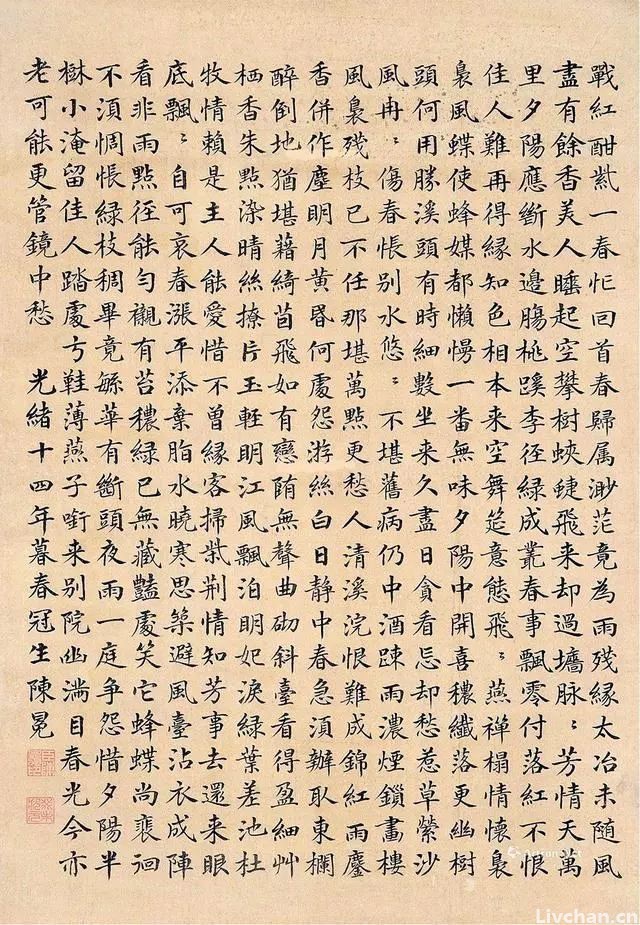 戰紅酣紫一春忙回首春歸属渺茫竟為雨殘緣太冶未随風
盡有餘香美人睡起空攀樹蛺蜨飛来却過墻脉〻芳情天萬
里夕陽應斷水邊腸桃蹊李徑緑成叢春事飄零付落紅不恨
佳人難再得緣知色相本来空舞筵意態飛〻燕禅榻情懷裊
裊風蝶使蜂媒都懶慢一番無味夕陽中開喜穠纖落更幽樹
頭何用勝溪頭有時細數坐来久盡日貪看忘却愁惹草縈沙
風冉〻傷春悵别水悠〻不堪舊病仍中酒踈雨濃煙鎖畫樓
風裊殘枝已不任那堪萬點更愁人清溪浣恨難成錦紅雨鏖
香併作塵明月黄昏何處怨游絲白日静中春急湏辦取東欄
醉倒地猶堪藉綺茵飛如有戀陏無聲曲砌斜臺看得盈細艸
栖香朱點染晴絲撩片玉輕明江風飄泊明妃淚緑葉差池杜
牧情賴是主人能愛惜不曽緣客掃紫荆情知芳事去還来眼
底飄〻自可哀春漲平添棄脂水曉寒思築避風臺沾衣成陣
看非雨點徑能勻襯有苔穠緑已無藏豔處笑它蜂蝶尚裵徊
不湏惆悵緑枝稠畢竟緐華有斷頭夜雨一庭争怨惜夕陽半
樹小淹留佳人踏處弓鞋薄燕子啣来别院幽满目春光今亦
老可能更管鏡中愁 光緒十四年暮春冠生陳冕
Livchan.cn